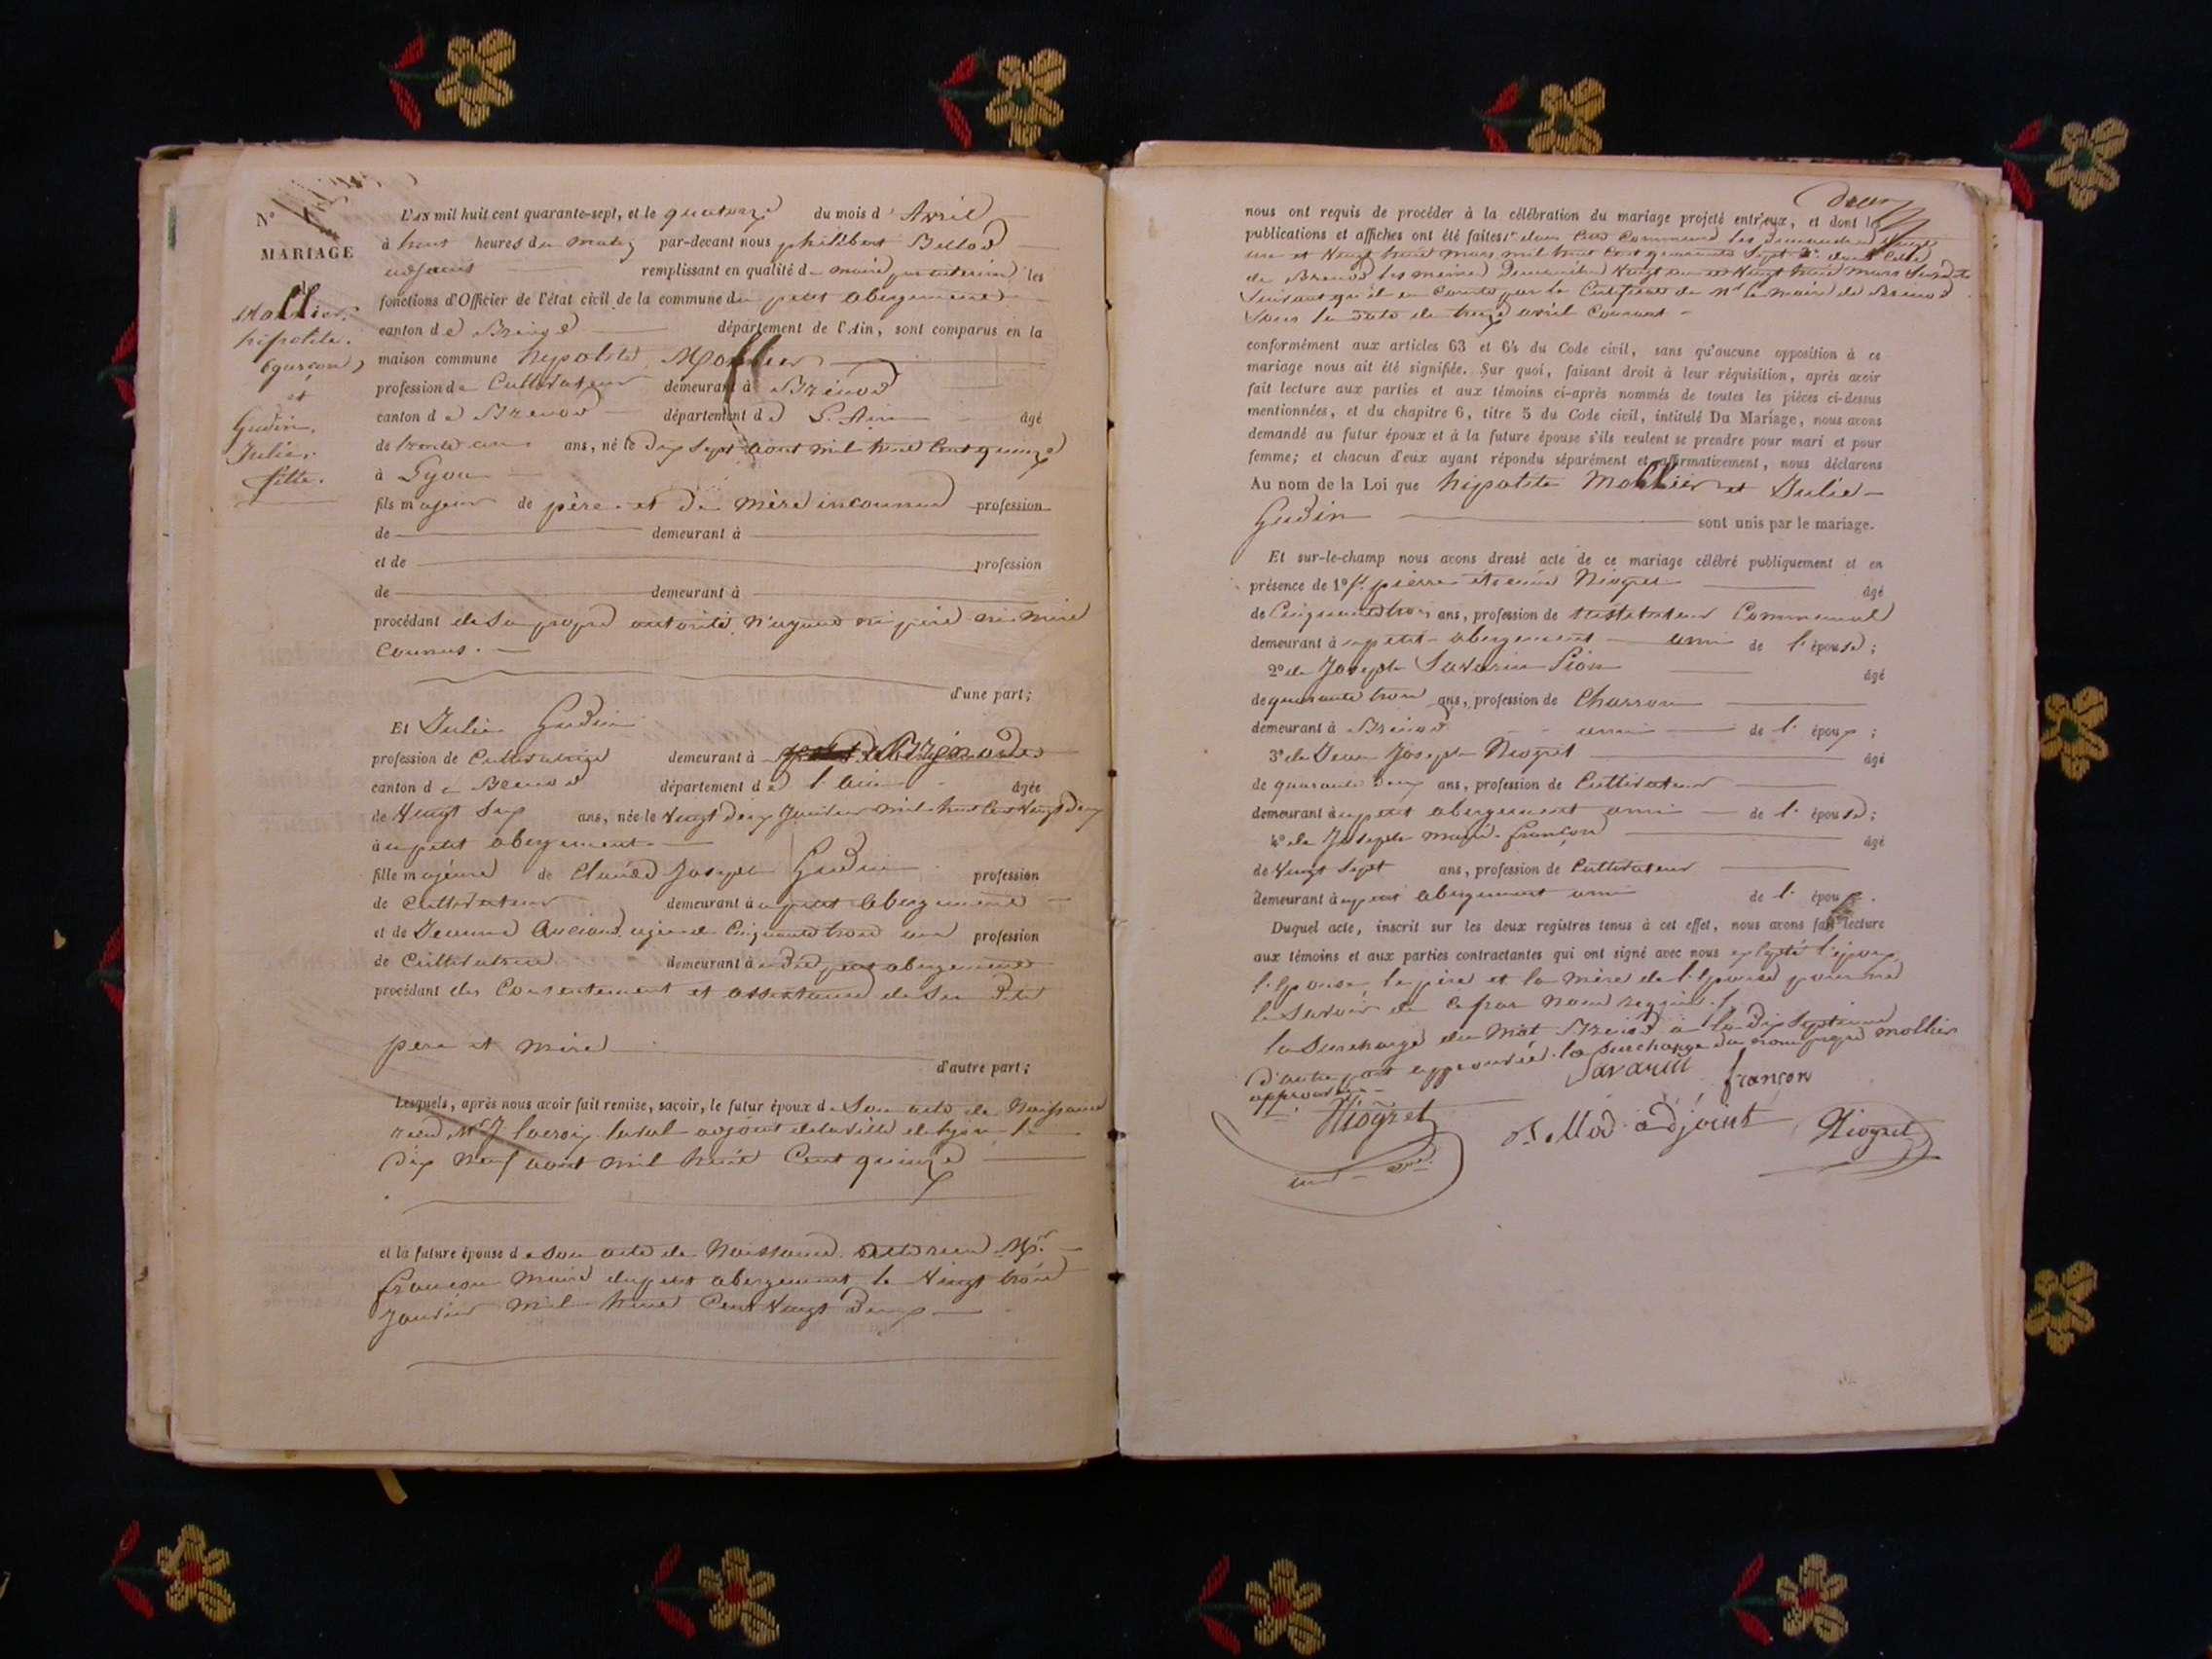 N°
MARIAGE
Mollier
hipolite.
garçon,
et
Gudin,
Julie,
fille.
L'AN mil huit cent quarante-sept, et le quatorze du mois d'Avril
à huit heures du matin par-devant nous philibert Bellod
adjoint remplissant en qualité de maire par interim les
fonctions d'Officier de l'état civil de la commune du petit abergement
canton de département de l'Ain, sont comparus en la
maison commune hypolite Mollier
profession de Cultivateur demeurant à Brénod
canton de Brenod département de L'Ain âgé
de trente un ans, né le dix sept aout mil huit cent quinze
à Lyon
fils majeur de père et de mère inconnus profession
de demeurant à
et de profession
de demeurant à
procédant de sa propre autorité, n'ayant ni père ni mère
connus.
d'une part;
Et Julie Gudin
profession de Cultivatrice demeurant à
canton de Brenod département de l'ain âgée
de Vingt ans, née le Vingt deux Janvier mil huit cent Vingt deux
au petit abergement
fille majeure de Claude Joseph Gudin profession
de Cultivateur demeurant au petit abergement
et de agée de Cinquante trois ans profession
de Cultivatrice demeurant au dit petit abergement
procédant du Consentement et assistance de ses dits
pere et mère
d'autre part;
Lesquels, après nous avoir fait remise, savoir, le futur époux de Son acte de Naissance
adjoint de la ville de Lyon le
dix neuf aout mil huit Cent quinze
et la future épouse de son acte de Naissance Mr
françon maire du petit abergement le Vingt trois
Janvier mil huit Cent Vingt deux
deux
nous ont requis de procéder à la célébration du mariage projeté entr'eux, et dont les
publications et affiches ont été faites 1° dans Cette Commune les dimanches vingt
un et Vingt huit mars mil huit Cent quarante Sept 2° dans Celle
de Brenod les mêmes Dimanches Vingt un et Vingt huit mars
Suivant qu'il en Conste par le Certificat de Mr le maire de Brenod
Sous la date du treize avril Courant
conformément aux articles 63 et 64 du Code civil, sans qu'aucune opposition à ce
mariage nous ait été signifiée. Sur quoi, faisant droit à leur réquisition, après avoir
fait lecture aux parties et aux témoins ci-après nommés de toutes les pièces ci-dessus
mentionnées, et du chapitre 6, titre 5 du Code civil, intitulé Du Mariage, nous avons
demandé au futur époux et à la future épouse s'ils veulent se prendre pour mari et pour
femme; et chacun d'eux ayant répondu séparément et affirmativement, nous déclarons
Au nom de la Loi que hipolite Mollier et Julie
Gudin sont unis par le mariage.
Et sur-le-champ nous avons dressé acte de ce mariage célébré publiquement et en
présence de 1° pierre Niogret âgé
de Cinquante trois ans, profession de instituteur Communal
demeurant au petit abergement ami de l'épouse;
2° de Joseph Savarin âgé
de quarante trois ans, profession de Charron
demeurant à Brénod ami de l'époux;
3° de Jean Joseph Niogret âgé
de quarante deux ans, profession de Cultivateur
demeurant au petit abergement ami de l'épouse;
4° de Joseph marie françon âgé
de Vingt Sept ans, profession de Cultivateur
demeurant au petit abergement ami de l'époux.
Duquel acte, inscrit sur les deux registres tenus à cet effet, nous avons fait lecture
aux témoins et aux parties contractantes qui ont signé avec nous excepté l'époux
l'épouse, le père et la mère de l'épouse pour ne
le Savoir de ce par nous requis.
la Surcharge du Mot Brénod à la dix Septieme
d'autre part approuvée. la Surcharge du nom mollier
approuvée
Savarin françon
Niogret Bellod adjoint Niogret